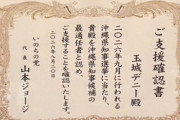 ご支援確認書
玉城デニー殿
二〇二六年九月に行われる
沖縄県知事選挙に当たり、
貴殿を沖縄県知事候補の
最適任者と認め、
ご支援することを確認いたします。
いのちの党
代表 山本ジョージ